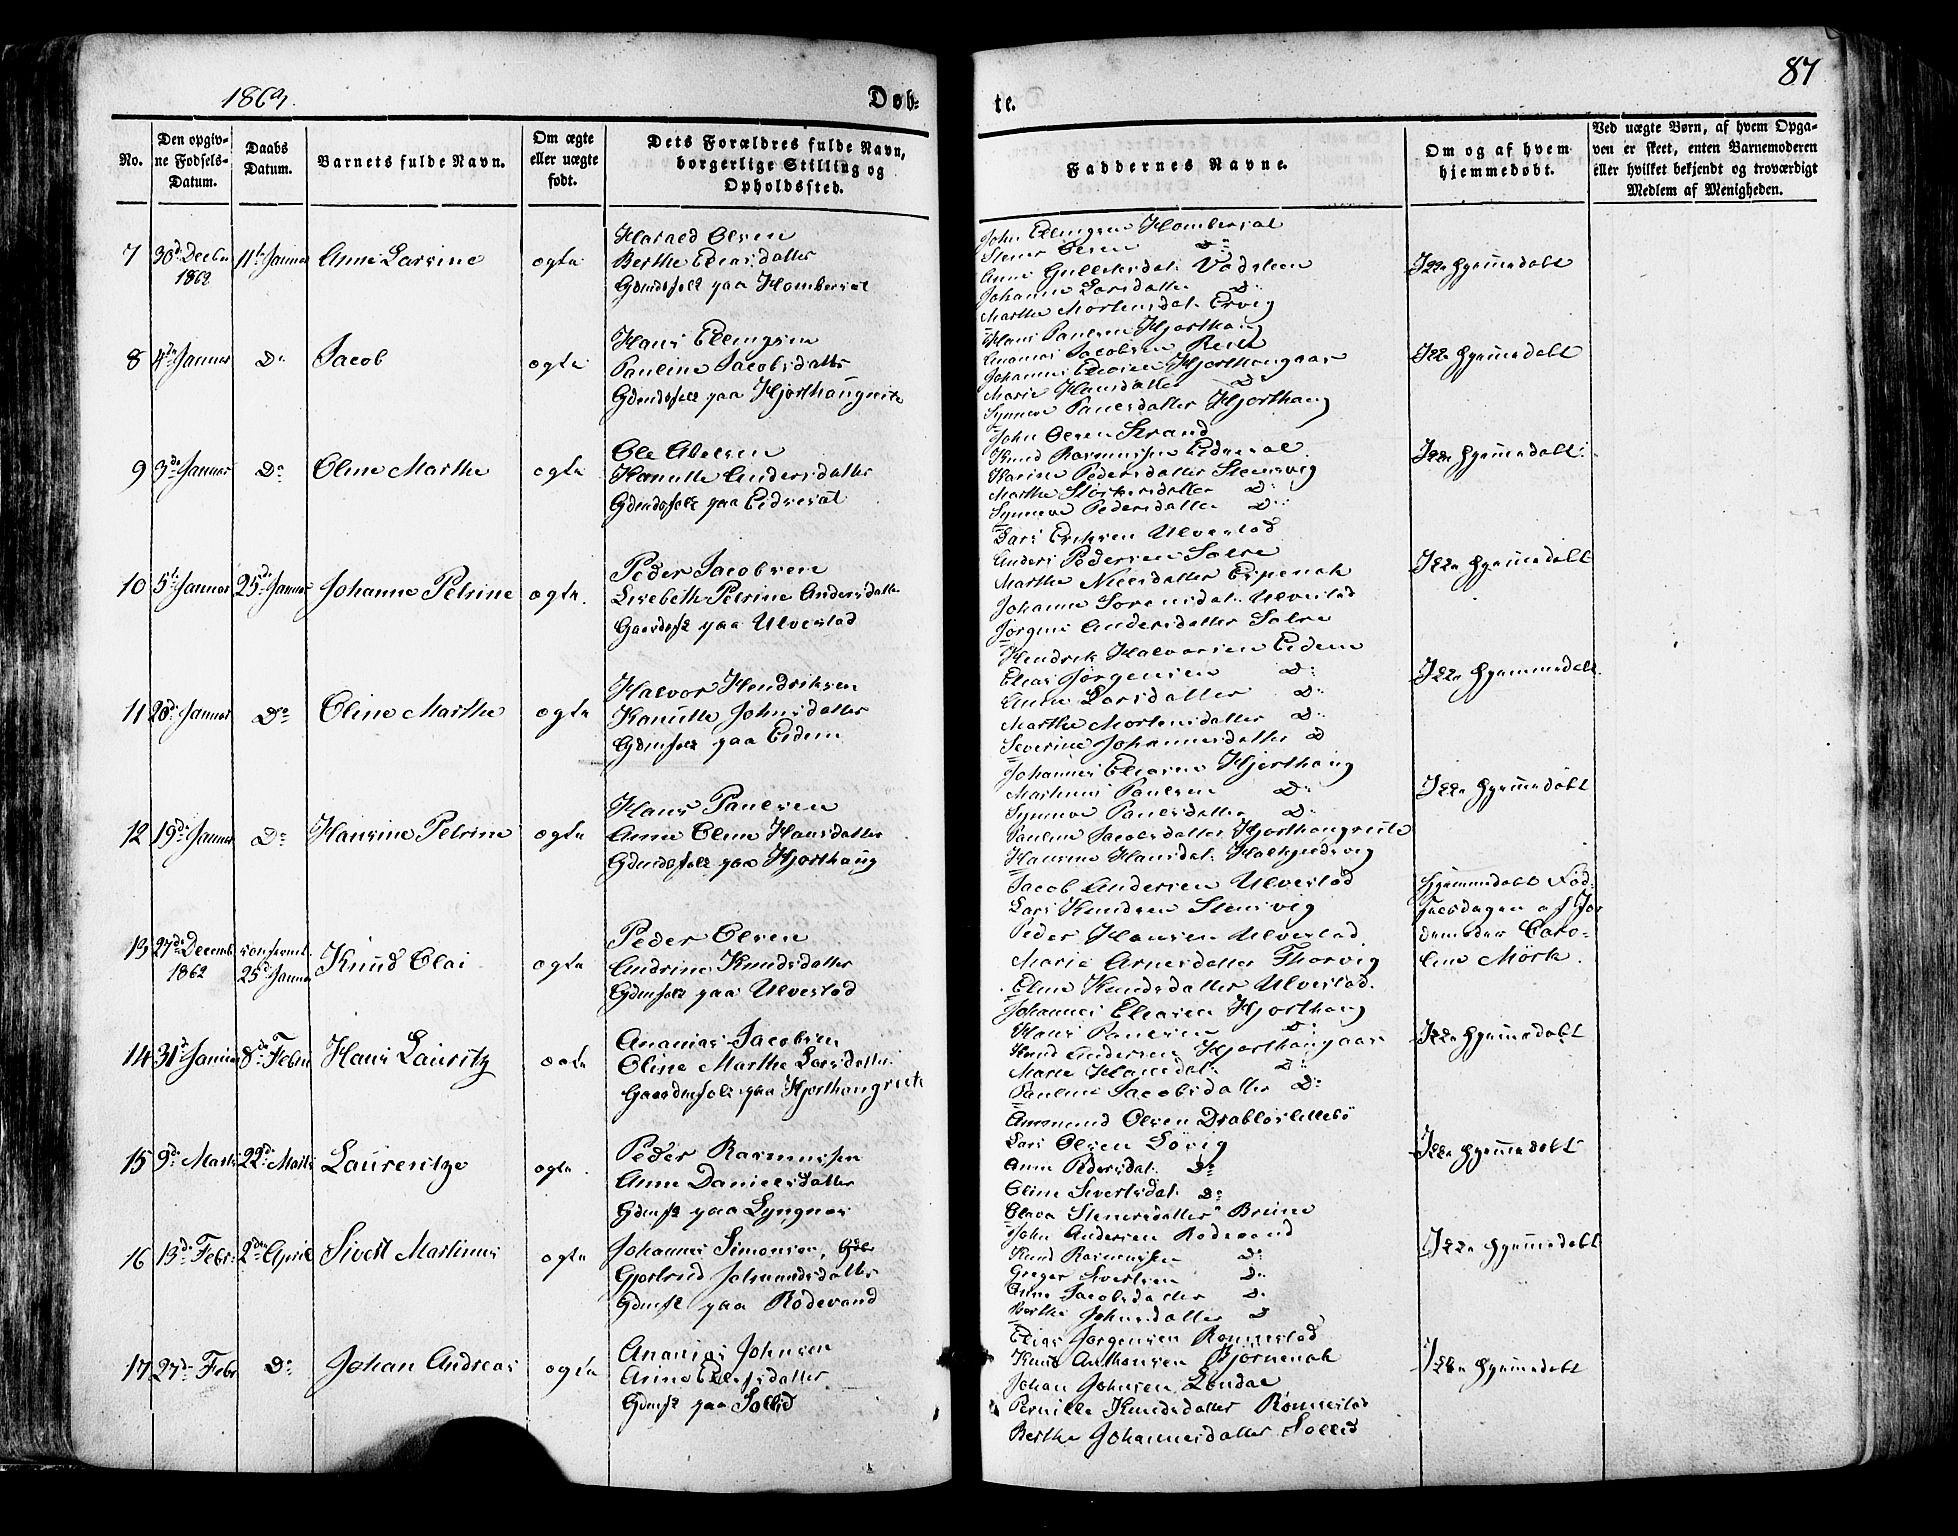 1863.
Døb-
te.
87
No.
Den opgiv-
ne Fødsels-
Datum.
Daabs
Datum.
Barnets fulde Navn.
Om ægte
eller uægte
født.
Dets Forældres fulde Navn,
borgerlige Stilling og
Opholdssted.
Faddernes Navne.
Om og af hvem
hjemmedøbt.
Ved uægte Børn, af hvem Opga-
ven er skeet, enten Barnemoderen
eller hvilket bekjendt og troværdigt
Medlem af Menigheden.
7 30d Decbr 1862 11te Januar Anne Larsine ægte
Harald Olsen
Berthe Eliasdatter
Gdmdsfolk paa Hombersæt
John Ellingsen Hombersæt
Stener Olsen Do
Anne Gulleksdat. Vadsteen
Johanne Larsdatter Do
Marthe Mortensdat. Ervig
Ikke hjemmedøbt
8 4de Januar Do Jacob ægte
Hans Ellingsen
Pauline Jacobsdatter
Gdmdsfolk paa Hjorthaugreite
Hans Paulsen Hjorthaug
Ananias Jacobsen Reite
Johannes Eliasen Hjorthaugaas
Marie Hansdatter Do
Synneve Paulsdatter Hjorthaug
Ikke hjemmedøbt
9 3de Januar Do Oline Marthe ægte
Ole Abelsen
Kanutte Andersdatter
Gdmdsfolk paa Eidresæt
John Olsen Strand
Knud Rasmussen Eidresæt
Karine Pedersdatter Stensvig
Marthe Størkersdatter Do
Synneve Pedersdatter Do
Ikke hjemmedøbt
10 5te Januar 25de Januar Johanne Petrine ægte.
Peder Jacobsen
Lisebeth Petrine Andersdatter
Gaardsfk paa Ulvestad
Lars Eriksen Ulvestad
Anders Pedersen Salre
Marthe Nielsdatter Espenak
Johanne Sørensdat. Ulvestad
Jørgine Andersdatter Salre
Ikke hjemmedøbt
11 20de Januar Do Oline Marthe ægte
Halvor Hendriksen
Kanutte Johnsdatter
Gdmfolk paa Eidem
Hendrik Halvorsen Eidem
Elias Jørgensen Do
Anne Larsdatter Do
Marthe Mortensdatter Do
Severine Johannesdatter D
Ikke hjemmedøbt
12 19de Januar Do Hansine Petrine ægte
Hans Paulsen
Anne Oline Hansdatter
Gdmdsfolk paa Hjorthaug
Johannes Eliasen Hjorthaug
Martinus Paulsen Do
Synneve Paulsdatter Do
Pauline Jacobsdatter Hjorthaugreite
Hansine Hansdat.
Ikke hjemmedøbt
13 27de Decemb. 1862 25de Januar Knud Elai ægte
Peder Olsen
Andrine Knudsdatter
Gdmfolk paa Ulvestad
Jacob Andersen Ulvestad
Lars Knudsen Stensvig
Peder Hansen Ulvestad
Marie Arnesdatter Thorvig
Eline Knudsdatter Ulvestad.
Hjemmedøbt Fød-
selsdagen af Jor
demoder Caro-
line Mørk.
14 31d Januar 8de Febr Hans Lauritz ægte
Ananias Jacobsen
Oline Marthe Larsdatter
Gaardmfolk paa Hjorthaugreite
Johannes Eliasen Hjorthaug
Hans Paulsen Do
Knud Andersen Hjorthaugaas
Marie Hansdat. Do
Pauline Jacobsdatter Do
Ikke hjemmedøbt
15 9de Marts 22de Marts Laurentze ægte
Peder Rasmussen
Anne Danielsdatter
Gdmfk paa Lyngnes
Amund Olsen Drabløslillebø
Lars Olsen Løvig
Anne Pedersdat. Do
Oline Sivertsdat. Do
Olava Stenersdatter Brune
Ikke hjemmedøbt
16 13de Febr. 2den April Sivert Martinus ægte
Johannes Simonsen,
Gjertrud Johannesdatter
Gdmfk paa Rødevand
John Andersen Rødevand
Knud Rasmussen Do
Greger Sivertsen Do
Anne Jacobsdatter Do
Berthe Johnsdatter D
Ikke hjemmedøbt
17 27de Febr Do Johan Andreas ægte
Ananias Johnsen
Anne Elefsdatter
Gdmfk paa Sollid
Elias Jørgensen Rønnestad
Knud Anthonsen Bjørnenak
Johan Johnsen Løndal
Pernille Knudsdatter Rønnestad
Berthe Johannesdatter Sollid
Ikke hjemmedøbt